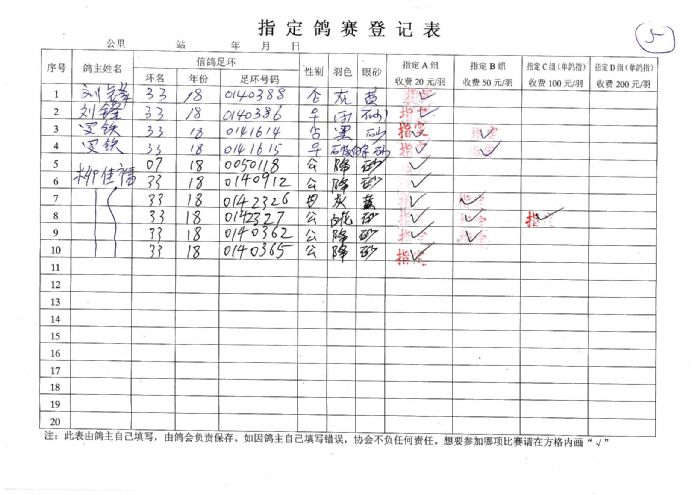 指定鸽赛登记表
5
公里 站 年 月 日
序号 鸽主姓名 信鸽足环 性别 羽色 眼砂 指定A组 指定B组 指定C组(单鸽指) 指定D组(单鸽指)
环名 年份 足环号码 收费20元/羽 收费50元/羽 收费100元/羽 收费200元/羽
1 刘锋 33 18 0140388 灰 黄 指定 ✓
2 刘锋 33 18 0140386 砂 指定 ✓
3 33 18 0141614 黑 砂 指定 ✓ ✓
4 33 18 0141615 砂 指定 ✓ ✓
5 07 18 0050118 公 降 砂 ✓
6 柳佳福 33 18 0140912 公 降 砂 ✓
7 33 18 0142326 灰 黄 ✓ ✓
8 33 18 0142327 公 砂 ✓ ✓ 指 ✓
9 33 18 0140362 公 降 砂 ✓ ✓
10 33 18 0140365 公 降 砂 指定 ✓
11
12
13
14
15
16
17
18
19
20
注：此表由鸽主自己填写，由鸽会负责保存。如因鸽主自己填写错误，协会不负任何责任，想要参加哪项比赛请在方格内画“√”